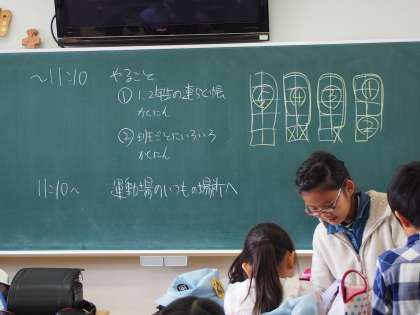 ~11:10 やること
① 1.2年生の連らく帳
かくにん
② 班ごとにいろいろ
かくにん
11:10~ 運動場のいつもの場所へ
⑤ ④ ③ ①
②